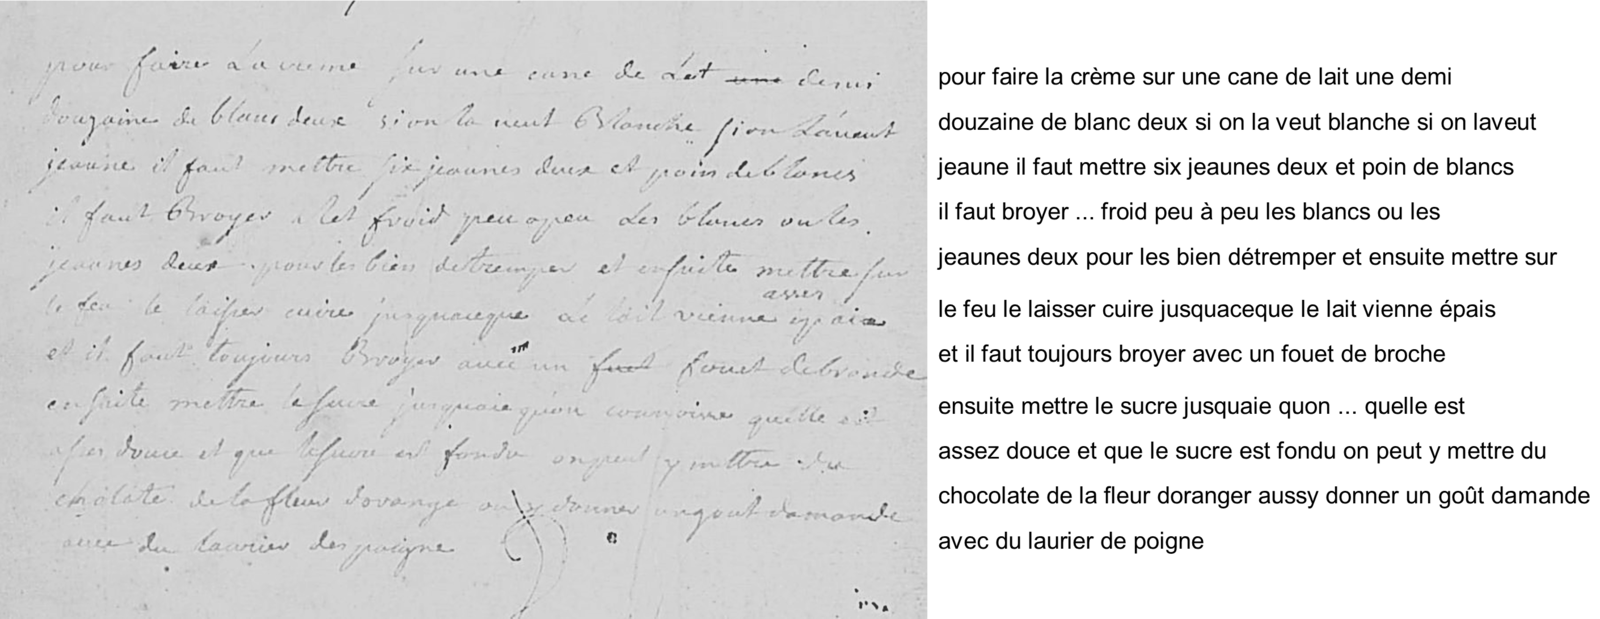 pour faire la creme sur une cane de let une demi
douzaine de blans deux si on la veut Blanche si on la veut
jeaune il faut mettre six jeaunes deux et poin de blancs
il faut Broyer a let froid peu a peu les blancs ou les
jeaunes deux pour les bien detremper et ensuite mettre sur
assés
le feu le laisser cuire jusquaceque le lait vienne epais
et il faut toujours Broyer avec un fuet fouet de
ensuite mettre le sucre jusquaie quon connoisse quelle est
asses douce et que le sucre est fondu on peut y mettre du
de la fleur dorange ou y donner un gout damande
avec du laurier
pour faire la crème sur une cane de lait une demi
douzaine de blanc deux si on la veut blanche si on laveut
jeaune il faut mettre six jeaunes deux et poin de blancs
il faut broyer ... froid peu à peu les blancs ou les
jeaunes deux pour les bien détremper et ensuite mettre sur
le feu le laisser cuire jusquaceque le lait vienne épais
et il faut toujours broyer avec un fouet de broche
ensuite mettre le sucre jusquaie quon ... quelle est
assez douce et que le sucre est fondu on peut y mettre du
chocolate de la fleur doranger aussy donner un goût damande
avec du laurier de poigne